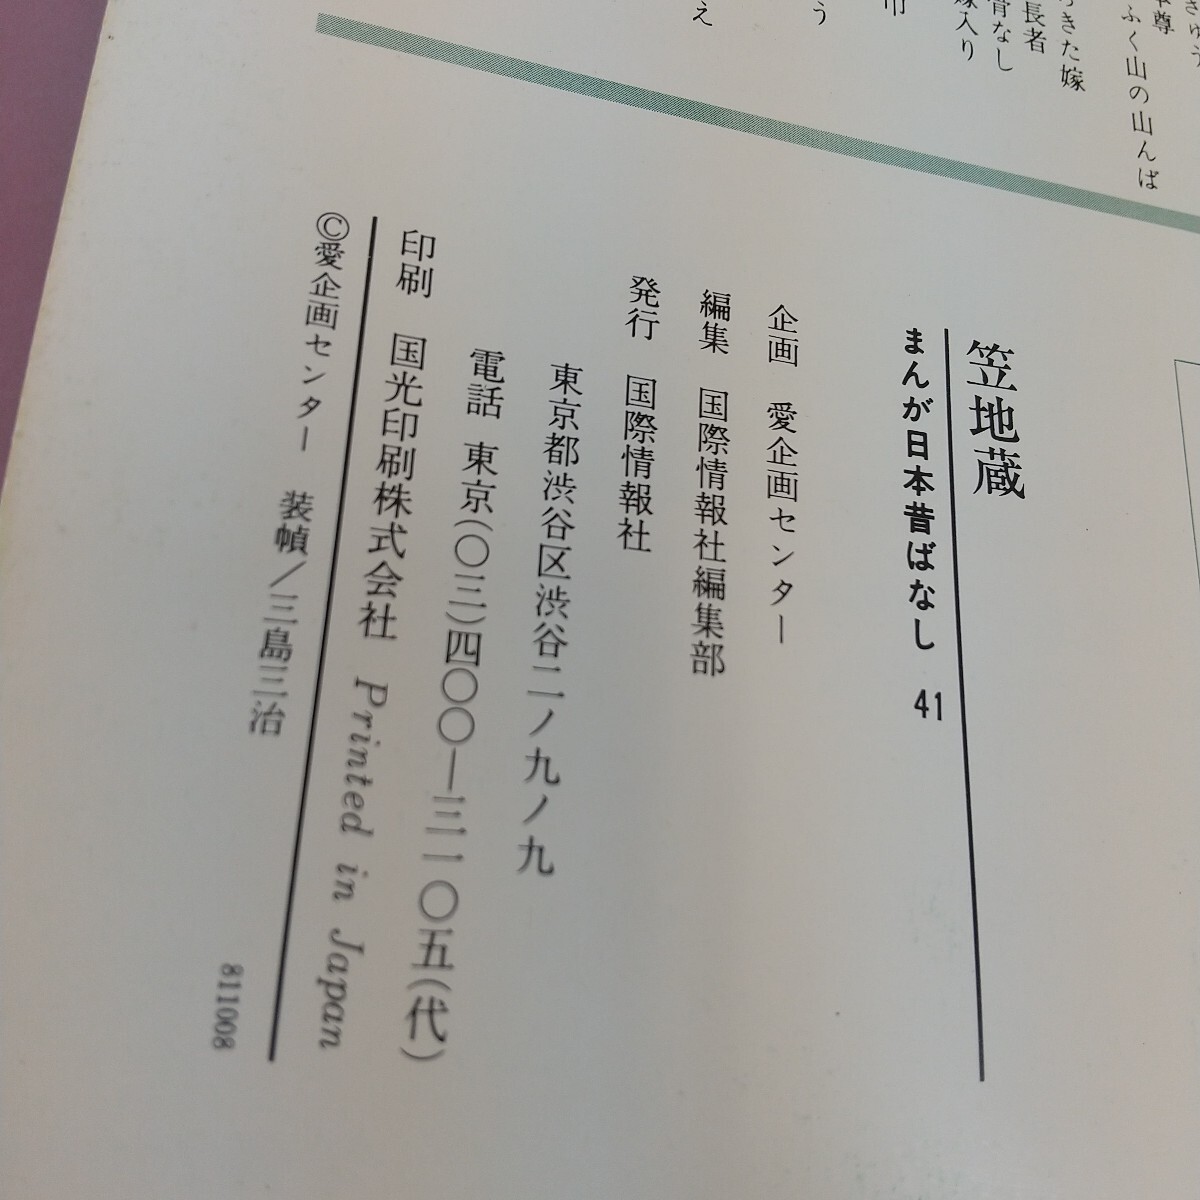 ふく山の山んば
本尊
きた嫁
長者
骨なし
嫁入り
う
え
笠地蔵
まんが日本昔ばなし 41
企画 愛企画センター
編集 国際情報社編集部
発行 国際情報社
東京都渋谷区渋谷二ノ九ノ九
電話 東京(〇三)四〇〇―三一〇五(代)
印刷 国光印刷株式会社 Printed in Japan
©愛企画センター 装幀/三島三治
811008